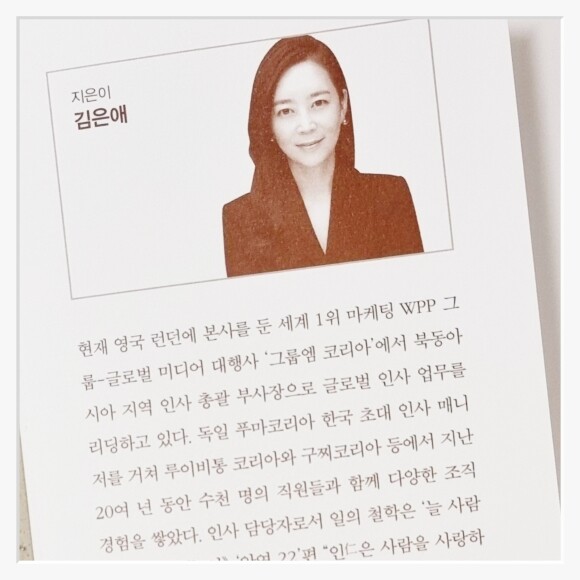 지은이
김은애
현재 영국 런던에 본사를 둔 세계 1위 마케팅 WPP 그
룹-글로벌 미디어 대행사 '그룹엠 코리아'에서 북동아
시아 지역 인사 총괄 부사장으로 글로벌 인사 업무를
리딩하고 있다. 독일 푸마코리아 한국 초대 인사 매니
저를 거쳐 루이비통 코리아와 구찌코리아 등에서 지난
20여 년 동안 수천 명의 직원들과 함께 다양한 조직
경험을 쌓았다. 인사 담당자로서 일의 철학은 '늘 사람
22'편 "인仁은 사람을 사랑하